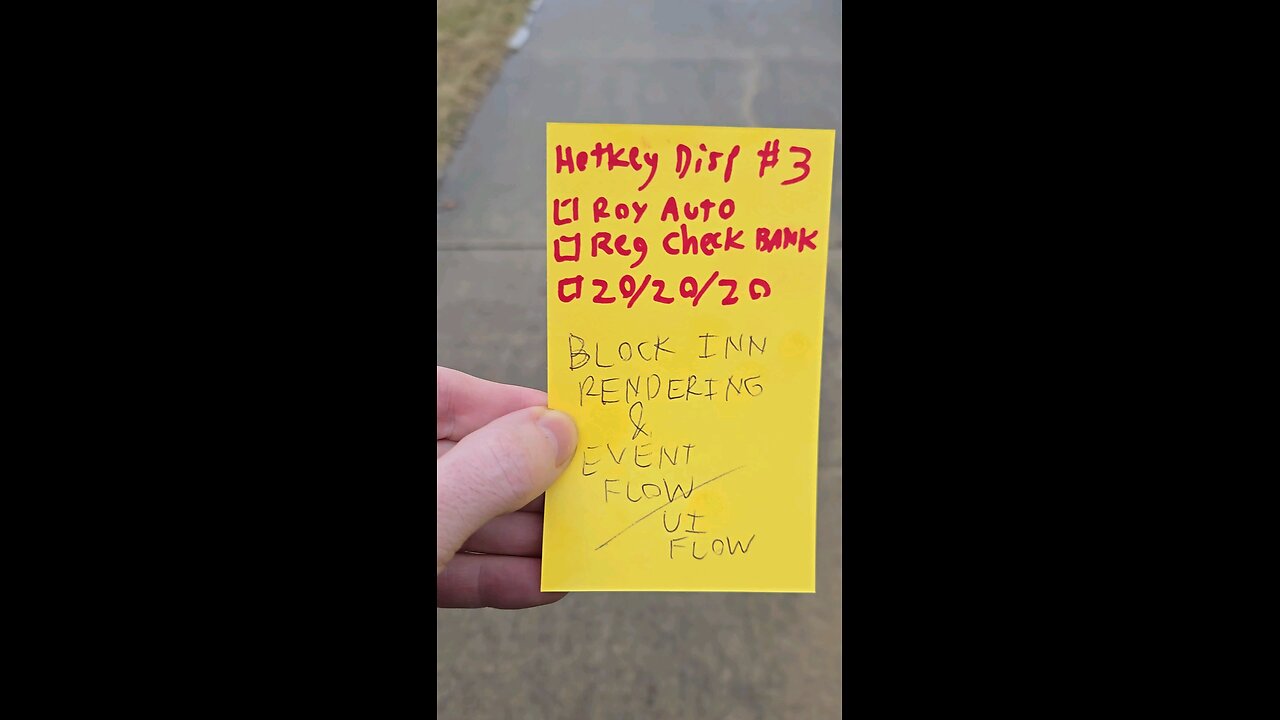 Hotkey Disp #3
Roy Auto
Reg Check BANK
20/20/20
BLOCK INN
RENDERING
&
EVENT
FLOW
UI
FLOW